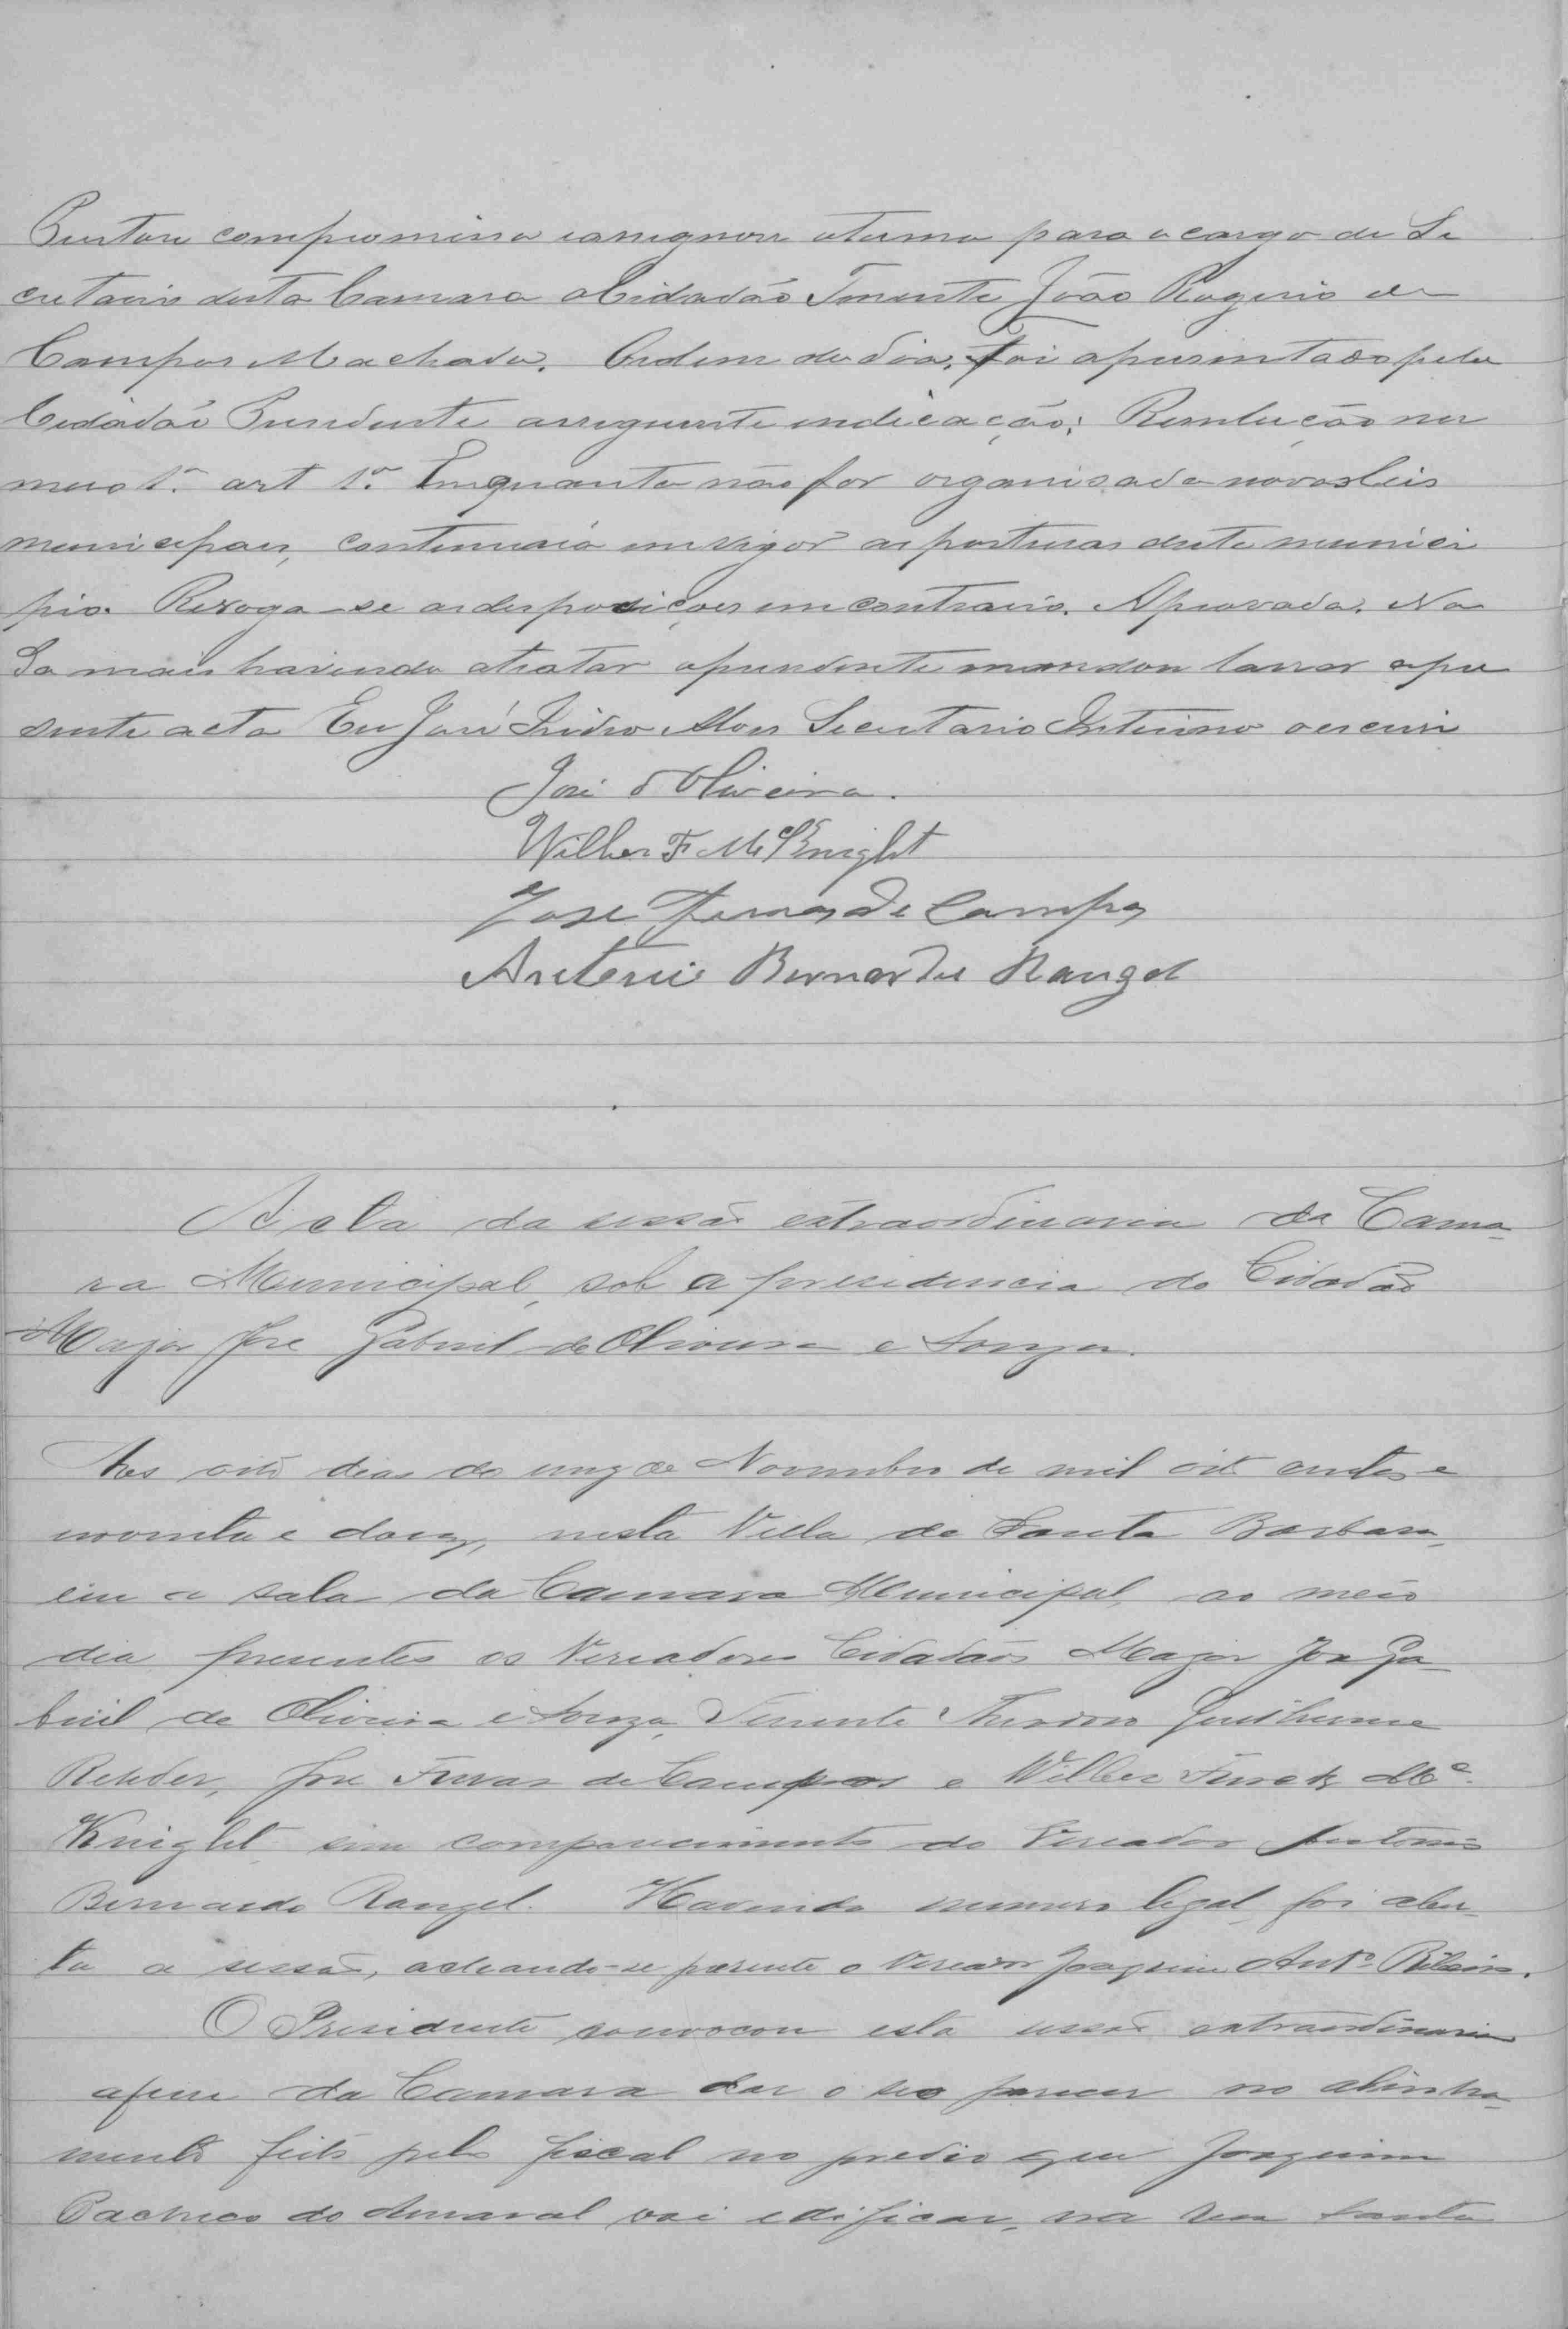 Prestou compromisso e assignou o termo para o cargo de Se
cretario desta Camara o Cidadão Tenente João Rogerio de
Campos Machado. Ordem do dia, foi apresentado pelo
Cidadão Presidente a seguinte indicação: Resolução nu
mero 1º art 1º Emquanto não for organisada novas Leis
municipaes, continuará em vigor as posturas deste munici
pio. Revoga-se as desposições em contrario. Aprovada. Na
da mais havendo a tratar o presidente mandou lavrar a pre
sente acta Eu José Izidro Alves Secretario Interino o escrevi
José d'Oliveira.
Wilber F McKnight
Jose Ferras de Campos
Antonio Bernardes Rangel
Acta da sessão extraordinaria da Cama-
ra Municipal, sob a presidencia do Cidadão
Major Jose Gabriel de Oliveira e Souza.
Aos oito dias do mez de Novembro de mil oito centos e
noventa e dous, nesta Villa de Santa Barbara,
em a sala da Camara Municipal, ao meio
dia presentes os Vereadores Cidadãos Major Jose Ga-
briel de Oliveira e Souza, Tenente Theodoro Guilherme
Rehder, Jose Ferraz de Campos e Wilber Mc
Knight sem comparecimento do Vereador Antonio
Bernardo Rangel. Havendo numero legal, foi aber-
ta a sessão, achando-se presente o Vereador Joaquim Antº Ribeiro.
O Presidente convocou esta sessão extraordinaria
afim da Camara dar o seo parecer no alinha-
mento feito pelo fiscal no predio que Joaquim
Pacheco do Amaral vai edificar, na rua Santa